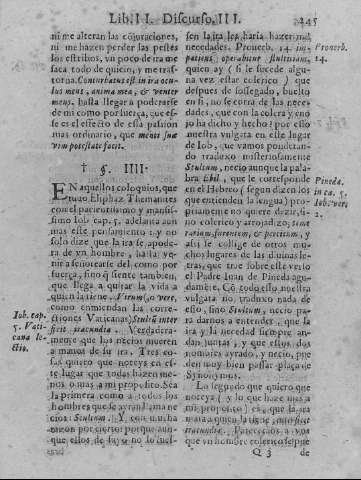 Lib. II. Discurso, III. 245
ni me alteran las conjuraciones,
ni me hazen perder las pestes
los estribos, vn poco de ira me
saca todo de quicio, y me tras-
torna. Conturbatus est in ira ocu-
lus meus, anima mea, & venter
meus, hasta llegar a poderarse
de mi como por fuerça, que es-
se es el effecto de esta passion
mas ordinario, que mentis suæ
vim potestate facit.
† §. IIII.
EN aquellos coloquios, que
tuuo Eliphaz Themanites
con el pacientissimo y mansis-
simo Iob cap. 5. adelanta aun
mas este pensamiento: y no
solo dize que la ira se apode-
ra de vn hombre, hasta ve-
nir a señorearse del como por
fuerça, sino q̃ siente tambien,
que llega a quitar la vida a
quien la tiene. Virum, o vere,
como enmiendan las corre-
ctiones Vaticanas, Stultũ inter
ficit iracundia. Verdadera-
mente que los necios mueren
a manos de su ira. Tres co-
sas quiero que noteys en es-
te lugar que todas hazen me-
nos o mas a mi proposito. Sea
la primera como a todos los
hombres que se ayran llama ne
cios: Stultum. Y con mucha
razon por cierto: porque aun-
que ellos de suyo no lo fues-
Iob. cap.
5. Vati-
cana le-
ctio.
sen la ira les haria hazer mil
necedades. Prouerb. 14. im-
patiens operabitur stultitiam,
quien ay (si le sucede algu-
na vez estar colerico) que
despues de sossegado, buelto
en si, no se corra de las nece-
dades, que con la colera y eno
jo ha dicho y hecho? por esso
nuestra vulgata en este lugar
de Iob, que vamos ponderan-
do traduxo misteriosamente
Stultum, necio aunque la pala-
bra Ehil, que le corresponde
en el Hebreo (segun dizen los
que entienden la lengua) pro-
priamente no quiere dezir, si-
no colerico y arrojadizo,
y
assi se collige de otros mu-
chos lugares de las diuinas le-
tras, que trae sobre este verso
el Padre Iuan de Pineda agu-
damẽte. Cõ todo esso nuestra
vulgata no traduxo nada de
esto, sino Stultum, necio pa-
ra darnos a entender, que la
ira y la necedad siempre an-
dan juntas; y que essos dos
nombres ayrado, y necio, pue
den muy bien passar plaça de
Synonimos.
Lo segundo que quiero que
noteys (y lo que haze mas a
mi proposito) es, que la ira
mata a quien la tiene,
Pareceros a vos
que vn hombre colerico se q̃
Prouerb.
14.
Pineda.
in ca. 5.
Iob. ver.
2.
Q 3 de